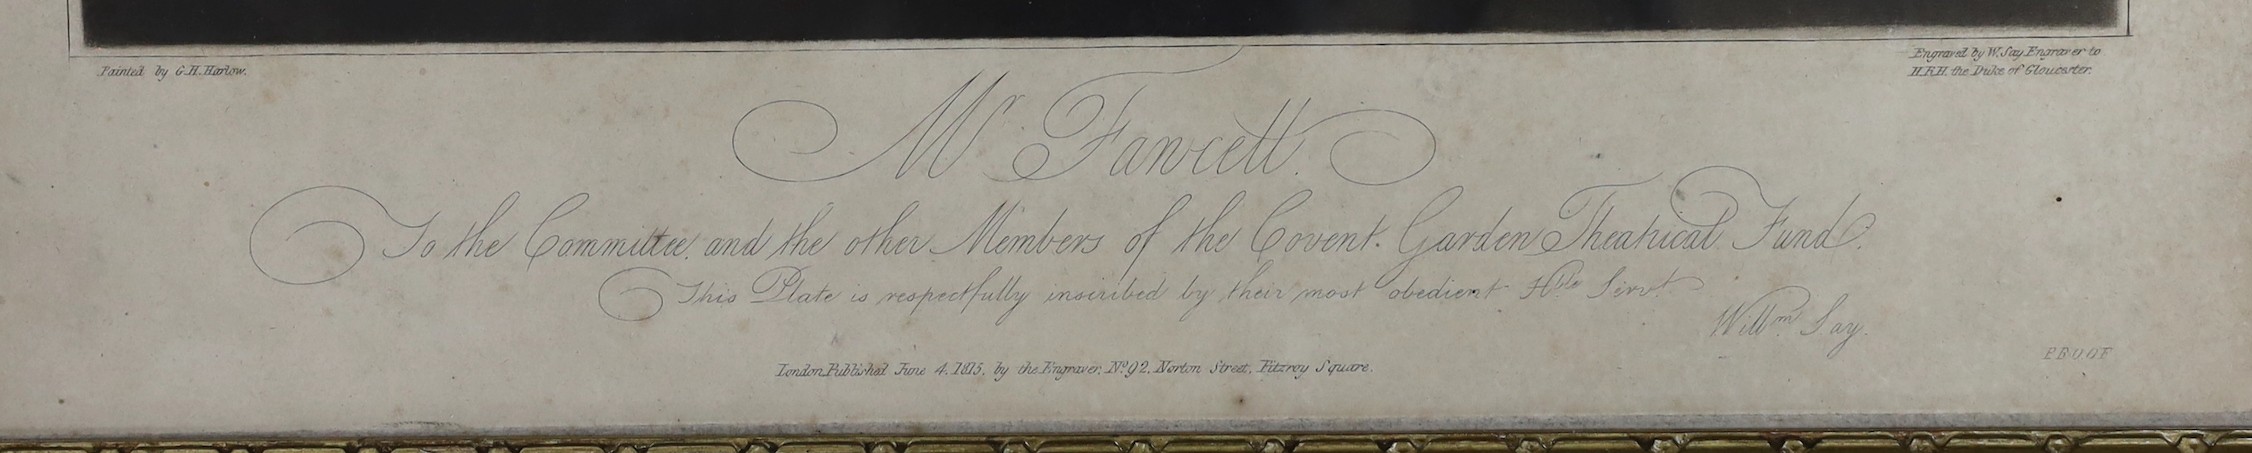 Painted by G.H. Harlow.
Engraved by W. Say Engraver to
H.R.H. the Duke of Gloucester.
Mr Fawcett.
To the Committee, and the other Members of the Covent-Garden Theatrical Fund.
This Plate is respectfully inscribed by their most obedient Hble Servt.
Willm Say.
London Published June 4, 1815, by the Engraver, No. 92, Norton Street, Fitzroy Square.
PROOF